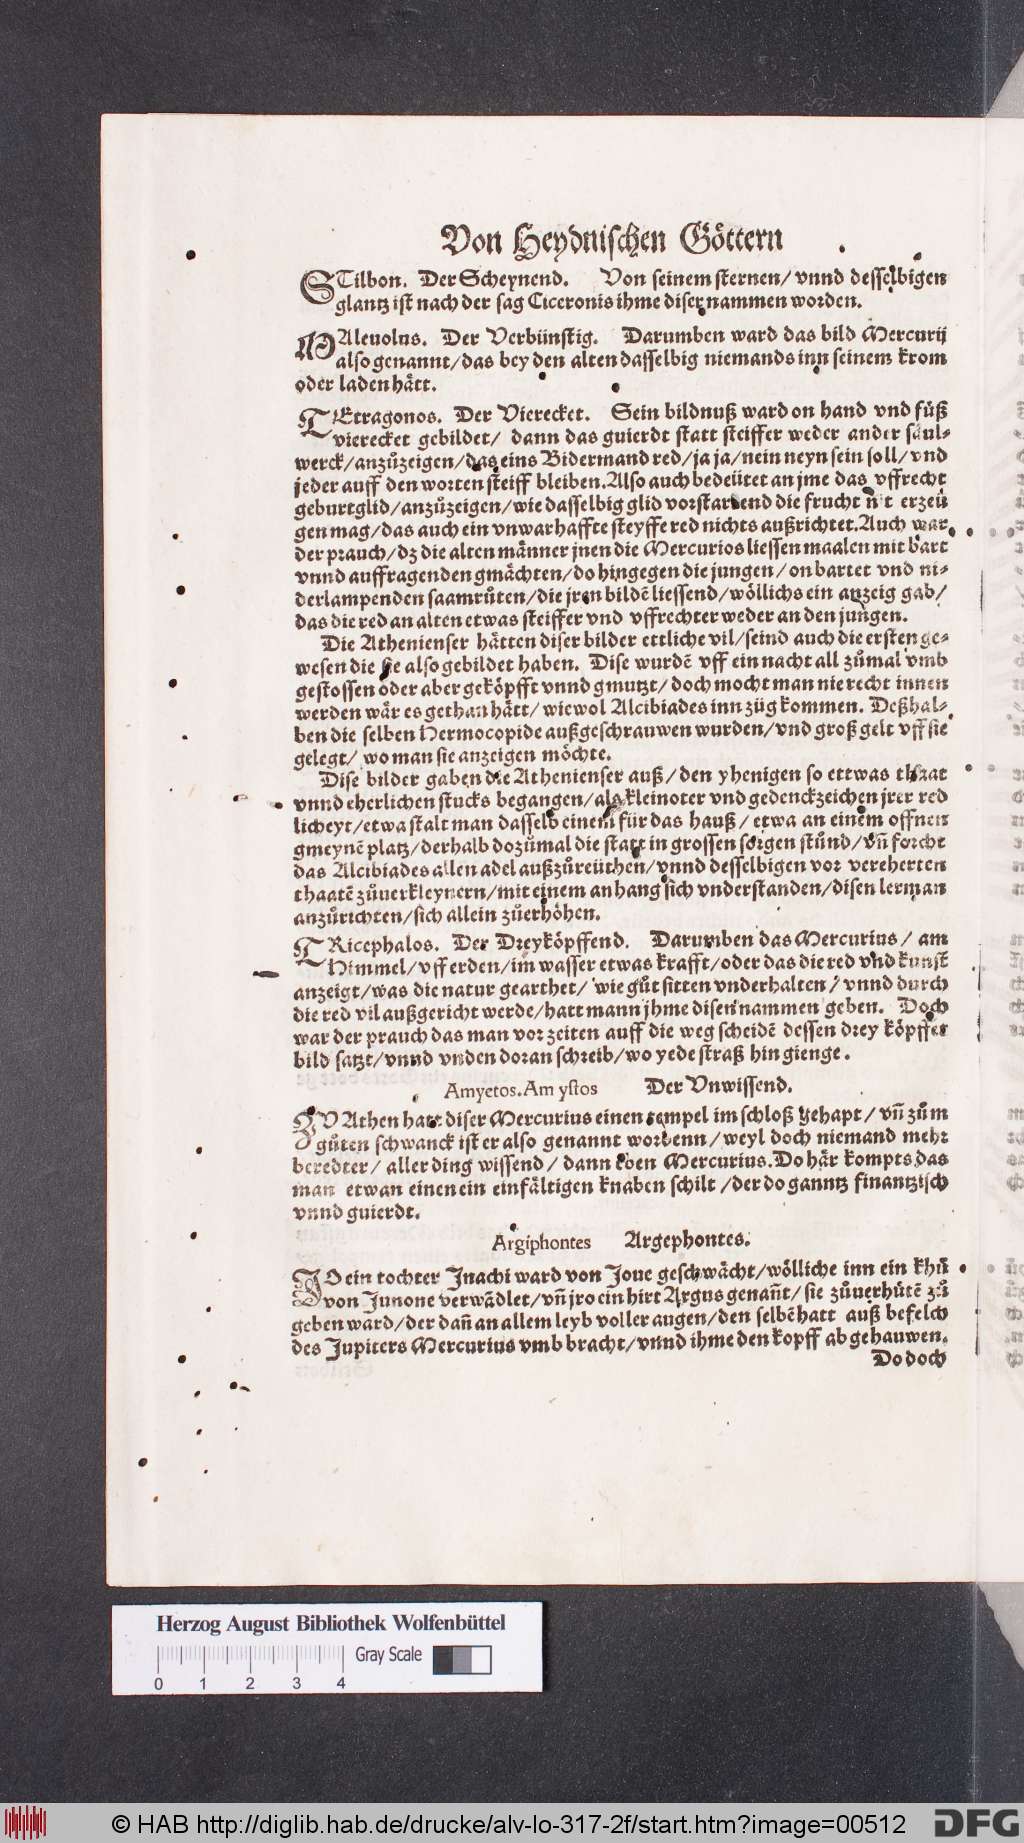 Von Heydnischen Göttern
STilbon. Der Scheynend. Von seinem sternen/ vnnd desselbigen
glantz ist nach der sag Ciceronis ihme diser nammen worden.
MAleuolus. Der Verbünstig. Darumben ward das bild Mercurij
also genannt/das bey den alten dasselbig niemands inn seinem krom
oder laden hätt.
TEtragonos. Der Vierecket. Sein bildnuß ward on hand vnd füß
vierecket gebildet/ dann das guierdt statt steiffer weder ander saul-
werck/anzůzeigen/das eins Bidermand red/ja ja/nein neyn sein soll/vnd
jeder auff den worten steiff bleiben. Also auch bedeütet an jme das vffrecht
geburtglid/anzůzeigen/wie dasselbig glid vorstarrend die frucht nit erzeü
gen mag/das auch ein vnwarhaffte steyffe red nichts außrichtet. Auch war
der prauch/dz die alten männer jnen die Mercurios liessen maalen mit bart
vnnd auffragenden gmächten/do hingegen die jungen/onbartet vnd ni-
derlampenden saamrůten/die jren bildē liessend/wöllichs ein anzeig gab/
das die red an alten etwas steiffer vnd vffrechter weder an den jungen.
Die Athenienser hätten diser bilder ettliche vil/seind auch die ersten ge-
wesen die sie also gebildet haben. Dise wurdē vff ein nacht all zůmal vmb
gestossen oder aber geköpfft vnnd gmutzt/doch mocht man nie recht innen
werden wär es gethan hätt/wiewol Alcibiades inn züg kommen. Deßhal-
ben die selben Hermocopide außgeschrauwen wurden/vnd groß gelt vff sie
gelegt/ wo man sie anzeigen möchte.
Dise bilder gaben die Athenienser auß/den yhenigen so ettwas thaat
vnnd eherlichen stucks begangen/als kleinoter vnd gedenckzeichen jrer red
licheyt/etwa stalt man dasselb einem für das hauß/etwa an einem offnen
gmeynē platz/derhalb dozůmal die statt in grossen sorgen stůnd/vñ forcht
das Alcibiades allen adel außzůreüthen/vnnd desselbigen vor vereherten
thaatē zůuerkleynern/mit einem anhang sich vnderstanden/disen lerman
anzůrichten/sich allein zůerhöhen.
TRicephalos. Der Dreyköpffend. Darumben das Mercurius/ am
Himmel/vff erden/im wasser etwas krafft/oder das die red vnd kunst
anzeigt/was die natur gearthet/ wie gůt sitten vnderhalten/vnnd durch
die red vil außgericht werde/hatt mann jhme disen nammen geben. Doch
war der prauch das man vor zeiten auff die weg scheidē dessen drey köpffet
bild satzt/vnnd vnden doran schreib/wo yede straß hin gienge.
Amyetos. Amystos Der Vnwissend.
ZV Athen hatt diser Mercurius einen tempel im schloß gehapt/vñ zům
gůten schwanck ist er also genannt wordenn/weyl doch niemand mehr
beredter/ aller ding wissend/ dann eben Mercurius. Do här kompts das
man etwan einen ein einfältigen knaben schilt/der do ganntz finantzisch
vnnd guierdt.
Argiphontes Argephontes.
JO ein tochter Jnachi ward von Joue geschwächt/wölliche inn ein khů
von Junone verwādlet/vñ jro ein hirt Argus genañt/sie zůuerhütē zů
geben ward/der dañ an allem leyb voller augen/den selbē hatt auß befelch
des Jupiters Mercurius vmb bracht/vnnd ihme den kopff abgehauwen.
Do doch
Herzog August Bibliothek Wolfenbüttel
Gray Scale
0 1 2 3 4
© HAB http://diglib.hab.de/drucke/alv-lo-317-2f/start.htm?image=00512
DFG